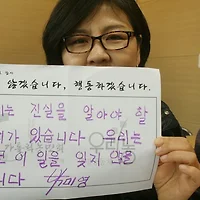 않겠습니다, 행동하겠습니다.
는 진실을 알아야 할
가 있습니다 우리는
이 일을 잊지 않을
니다